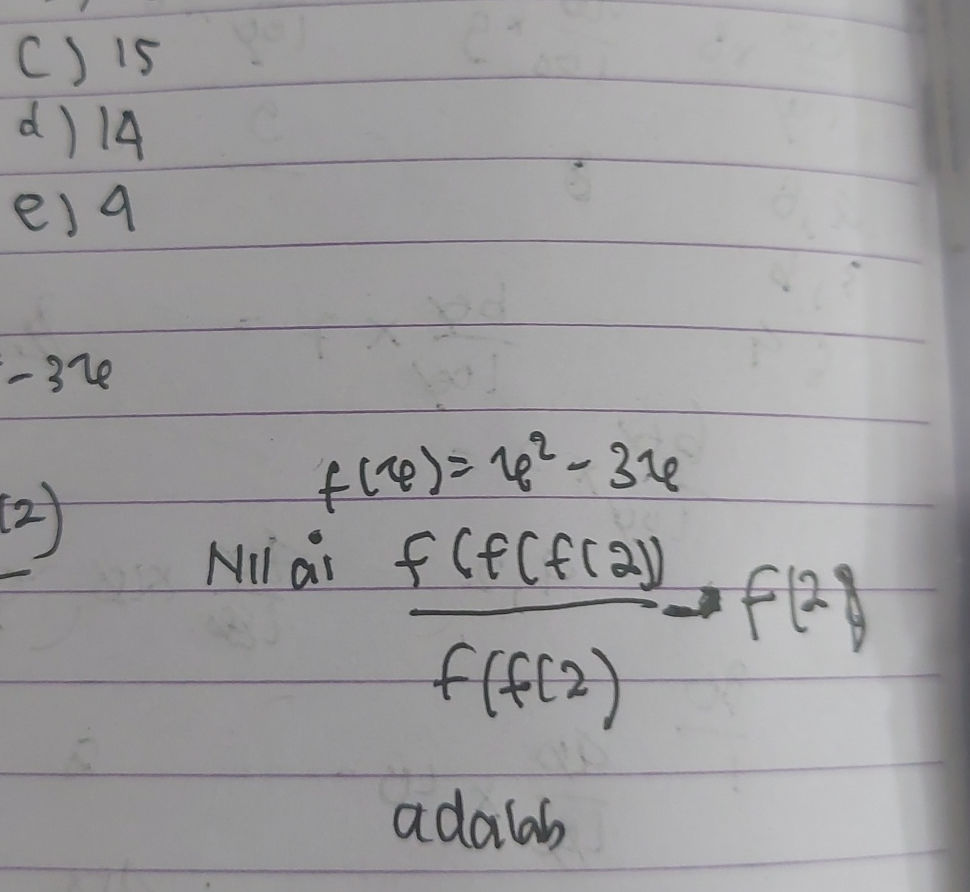 C) 15
d) 14
e) 9
-3x
(2)
f(x) = x² - 3x
Nilai f(f(f(2))
f(f(2)
- f(2)
adalah